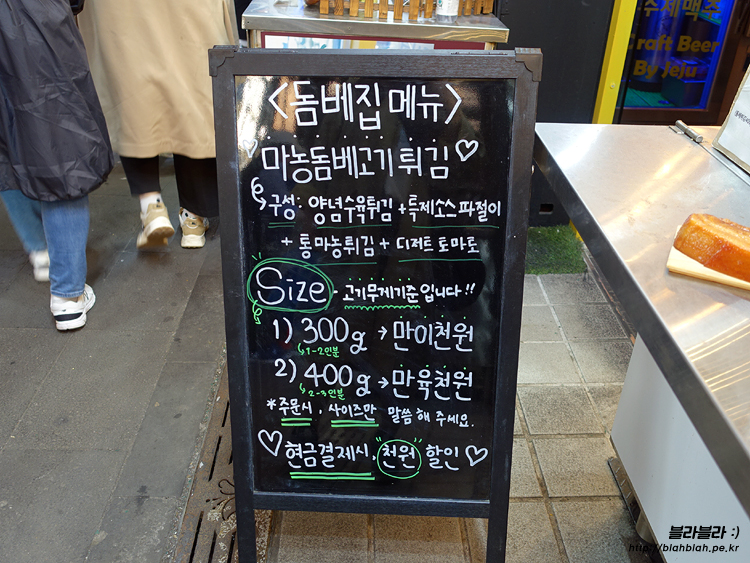 <돔베집 메뉴>
마농돔베고기튀김
구성: 양념수육튀김+특제소스파절이
+ 통마농튀김 + 디저트 토마토
Size - 고기무게기준입니다!!
1) 300g → 만이천원
1-2인분
2) 400g → 만육천원
2-3인분
*주문시, 사이즈만 말씀해 주세요.
현금결제시, 천원 할인
수제맥주
Craft Beer
By Jeju
블라블라 :)
http://blahblah.pe.kr